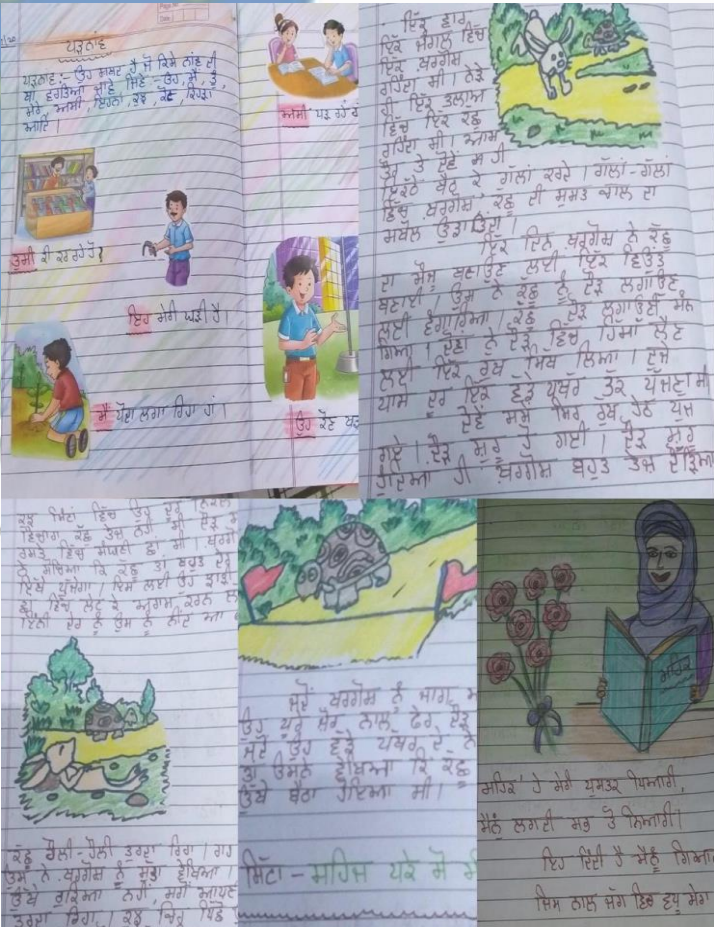 ਪੜਨਾਂਵ
ਪੜਨਾਂਵ :- ਉਹ ਸ਼ਬਦ ਹੈ ਜੋ ਕਿਸੇ ਨਾਂਵ ਦੀ
ਥਾਂ ਵਰਤਿਆ ਜਾਵੇ ਜਿਵੇਂ - ਉਹ, ਮੈਂ, ਤੂੰ,
ਆਦਿ ।
ਅਸੀਂ ਪੜ ਰਹੇ
ਤੁਸੀਂ ਕੀ ਕਰ ਰਹੇ ਹੋ?
ਇਹ ਮੇਰੀ ਘੜੀ ਹੈ ।
ਮੈਂ ਪੌਦਾ ਲਗਾ ਰਿਹਾ ਹਾਂ ।
ਉਹ ਕੌਣ
ਇੱਕ ਵਾਰ
ਇੱਕ ਜੰਗਲ ਵਿੱਚ
ਇੱਕ ਖ਼ਰਗੋਸ਼
ਰਹਿੰਦਾ ਸੀ । ਨੇੜੇ
ਹੀ ਇੱਕ ਤਲਾਅ
ਵਿੱਚ ਇੱਕ ਕੱਛੂ
ਰਹਿੰਦਾ ਸੀ । ਆਮ
ਤੌਰ ਤੇ ਦੋਵੇਂ
ਇਕੱਠੇ ਬੈਠ ਕੇ ਗੱਲਾਂ ਕਰਦੇ । ਗੱਲਾਂ-ਗੱਲਾਂ
ਵਿੱਚ ਖ਼ਰਗੋਸ਼, ਕੱਛੂ ਦੀ ਸੁਸਤ ਚਾਲ ਦਾ
ਮਖੌਲ ਉਡਾਉਂਦਾ ।
ਇੱਕ ਦਿਨ ਖ਼ਰਗੋਸ਼ ਨੇ ਕੱਛੂ
ਦਾ ਮੌਜੂ ਬਣਾਉਣ ਲਈ ਇੱਕ ਵਿਉਂਤ
ਬਣਾਈ । ਉਸ ਨੇ ਕੱਛੂ ਨੂੰ ਦੌੜ ਲਗਾਉਣ
ਲਈ ਵੰਗਾਰਿਆ । ਕੱਛੂ ਦੌੜ ਲਗਾਉਣੀ ਮੰਨ
ਗਿਆ । ਦੋਵਾਂ ਨੇ ਦੌੜ ਵਿੱਚ ਹਿੱਸਾ ਲੈਣ
ਲਈ ਇੱਕ ਰੁੱਖ ਮਿੱਥ ਲਿਆ । ਦੂਜੇ
ਪਾਸੇ ਦੂਰ ਇੱਕ ਵੱਡੇ ਪੱਥਰ ਤੱਕ ਪੁੱਜਣਾ ਸੀ
ਦੋਵੇਂ ਸਮੇਂ ਸਿਰ ਰੁੱਖ ਹੇਠ ਪੁੱਜ
ਗਏ । ਦੌੜ ਸ਼ੁਰੂ ਹੋ ਗਈ । ਦੌੜ ਸ਼ੁਰੂ
ਹੁੰਦਿਆਂ ਹੀ ਖ਼ਰਗੋਸ਼ ਬਹੁਤ ਤੇਜ਼ ਦੌੜਿਆ
ਕੁਝ ਮਿੰਟਾਂ ਵਿੱਚ ਉਹ ਦੂਰ ਨਿਕਲ
ਵਿਚਾਰਾ ਕੱਛੂ ਤੇਜ਼ ਨਹੀਂ ਸੀ ਦੌੜ
ਰਸਤੇ ਵਿੱਚ ਸੰਘਣੀ ਛਾਂ ਸੀ । ਖ਼ਰਗੋ
ਨੇ ਸੋਚਿਆ ਕਿ ਕੱਛੂ ਤਾਂ ਬਹੁਤ ਦੇਰ
ਇੱਥੇ ਪੁੱਜੇਗਾ । ਇਸ ਲਈ ਉਹ
ਵਿੱਚ ਲੇਟ ਕੇ ਆਰਾਮ ਕਰਨ ਲ
ਇੰਨੀ ਦੇਰ ਨੂੰ ਉਸ ਨੂੰ ਨੀਂਦ ਆ
ਕੱਛੂ ਹੌਲੀ-ਹੌਲੀ ਤੁਰਦਾ ਰਿਹਾ । ਰਾਹ
ਉਸ ਨੇ ਖ਼ਰਗੋਸ਼ ਨੂੰ ਸੁੱਤਾ ਵੇਖਿਆ ।
ਉੱਥੇ ਰੁਕਿਆ ਨਹੀਂ, ਸਗੋਂ ਆਪਣ
ਤੁਰਦਾ ਰਿਹਾ । ਕੁਝ ਚਿਰ ਪਿੱਛੋਂ
ਜਦੋਂ ਖ਼ਰਗੋਸ਼ ਨੂੰ ਜਾਗ
ਉਹ ਪੂਰੇ ਜ਼ੋਰ ਨਾਲ ਫੇਰ ਦੌੜ
ਜਦੋਂ ਉਹ ਵੱਡੇ ਪੱਥਰ ਦੇ ਨੇ
ਤਾਂ ਉਸਨੇ ਵੇਖਿਆ ਕਿ ਕੱਛੂ
ਉੱਥੇ ਬੈਠਾ ਹੋਇਆ ਸੀ ।
ਸਿੱਟਾ - ਸਹਿਜ ਪਕੇ ਸੋ ਮੀ
ਮਹਿਕ
ਮਹਿਕ ਹੈ ਮੇਰੀ ਪੁਸਤਕ ਪਿਆਰੀ,
ਮੈਨੂੰ ਲਗਦੀ ਸਭ ਤੋਂ ਨਿਆਰੀ ।
ਇਹ ਦਿੰਦੀ ਹੈ ਮੈਨੂੰ ਗਿਆ
ਜਿਸ ਨਾਲ ਜੱਗ ਵਿਚ ਵਧੂ ਮੇਰਾ